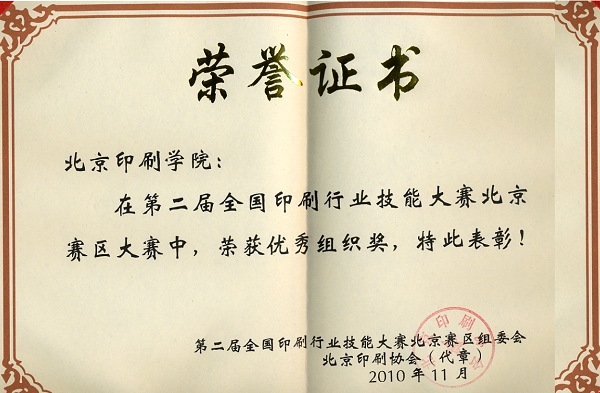 荣誉证书
北京印刷学院：
在第二届全国印刷行业技能大赛北京
赛区大赛中，荣获优秀组织奖，特此表彰！
第二届全国印刷行业技能大赛北京赛区组委会
北京印刷协会（代章）
2010 年 11 月